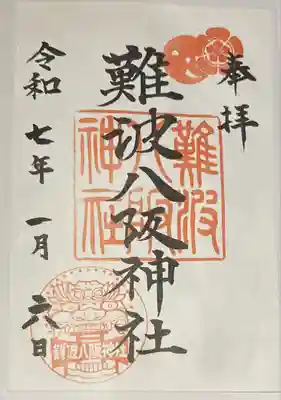 奉拝
難波八阪神社
難波
八阪
神社
令和七年一月六日
難波八阪神社